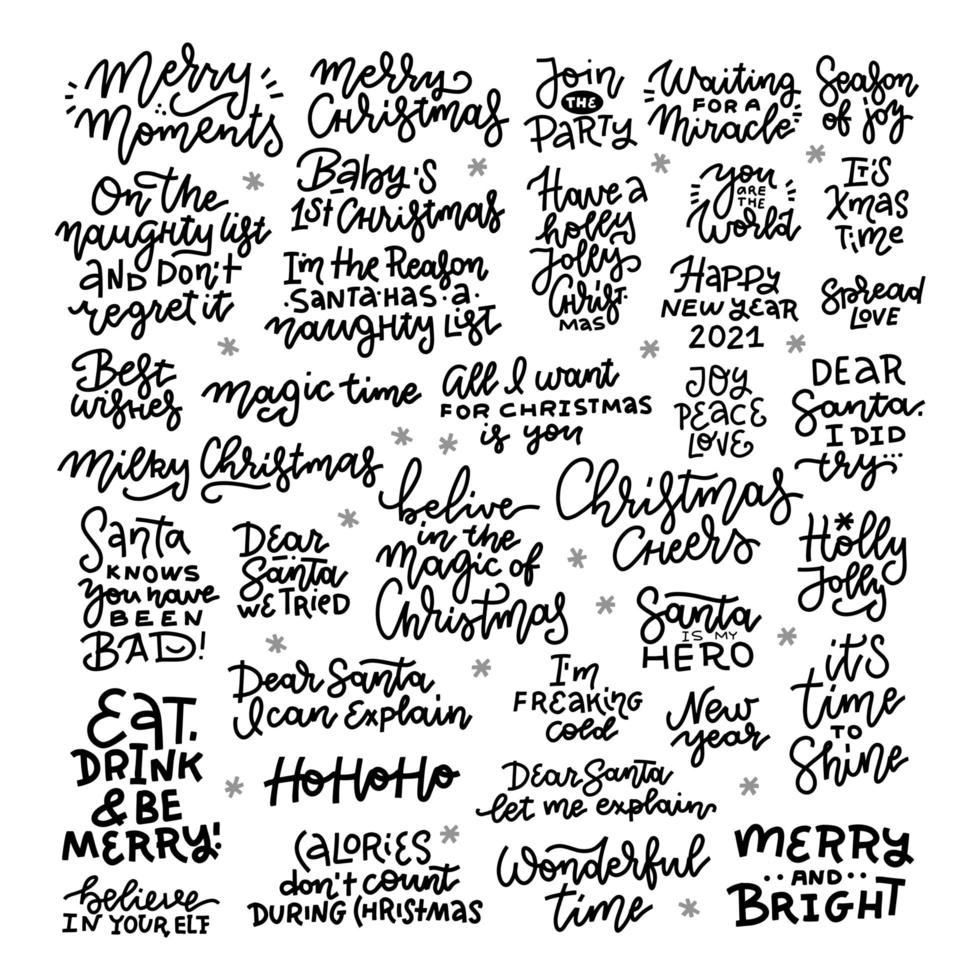 Merry
Moments
Merry
Christmas
Join
THE
PARTY
Waiting
FOR A
Miracle
Season
of joy
On the
naughty list
AND Don't
regret it
Baby's
1st Christmas
I'm the Reason
SANTA HAS a
naughty list
Have a
holly
Jolly
Christ
MAS
you
ARE
THE
World
It's
Xmas
Time
Happy
NEW YEAR
2021
Spread
LOVE
Best
wishes
magic time
All I want
FOR CHRISTMAS
is you
JOY
PEACE
LOVE
DEAR
Santa.
I DID
try...
Milky Christmas
belive
in the
Magic of
Christmas
Christmas
CHeers
Holly
Jolly
Santa
KNOWS
you have
BEEN
BAD!
Dear
Santa
WE TRIED
Santa
IS MY
HERO
it's
time
TO
Shine
Dear Santa
I can Explain
I'm
FREAKING
cold
New
year
EAT,
DRINK
& BE
MERRY!
HoHoHo
Dear Santa
let me explain
CALORIES
don't count
DURING CHRISTMAS
Wonderful
time
MERRY
AND
BRIGHT
believe
IN YOUR ELF